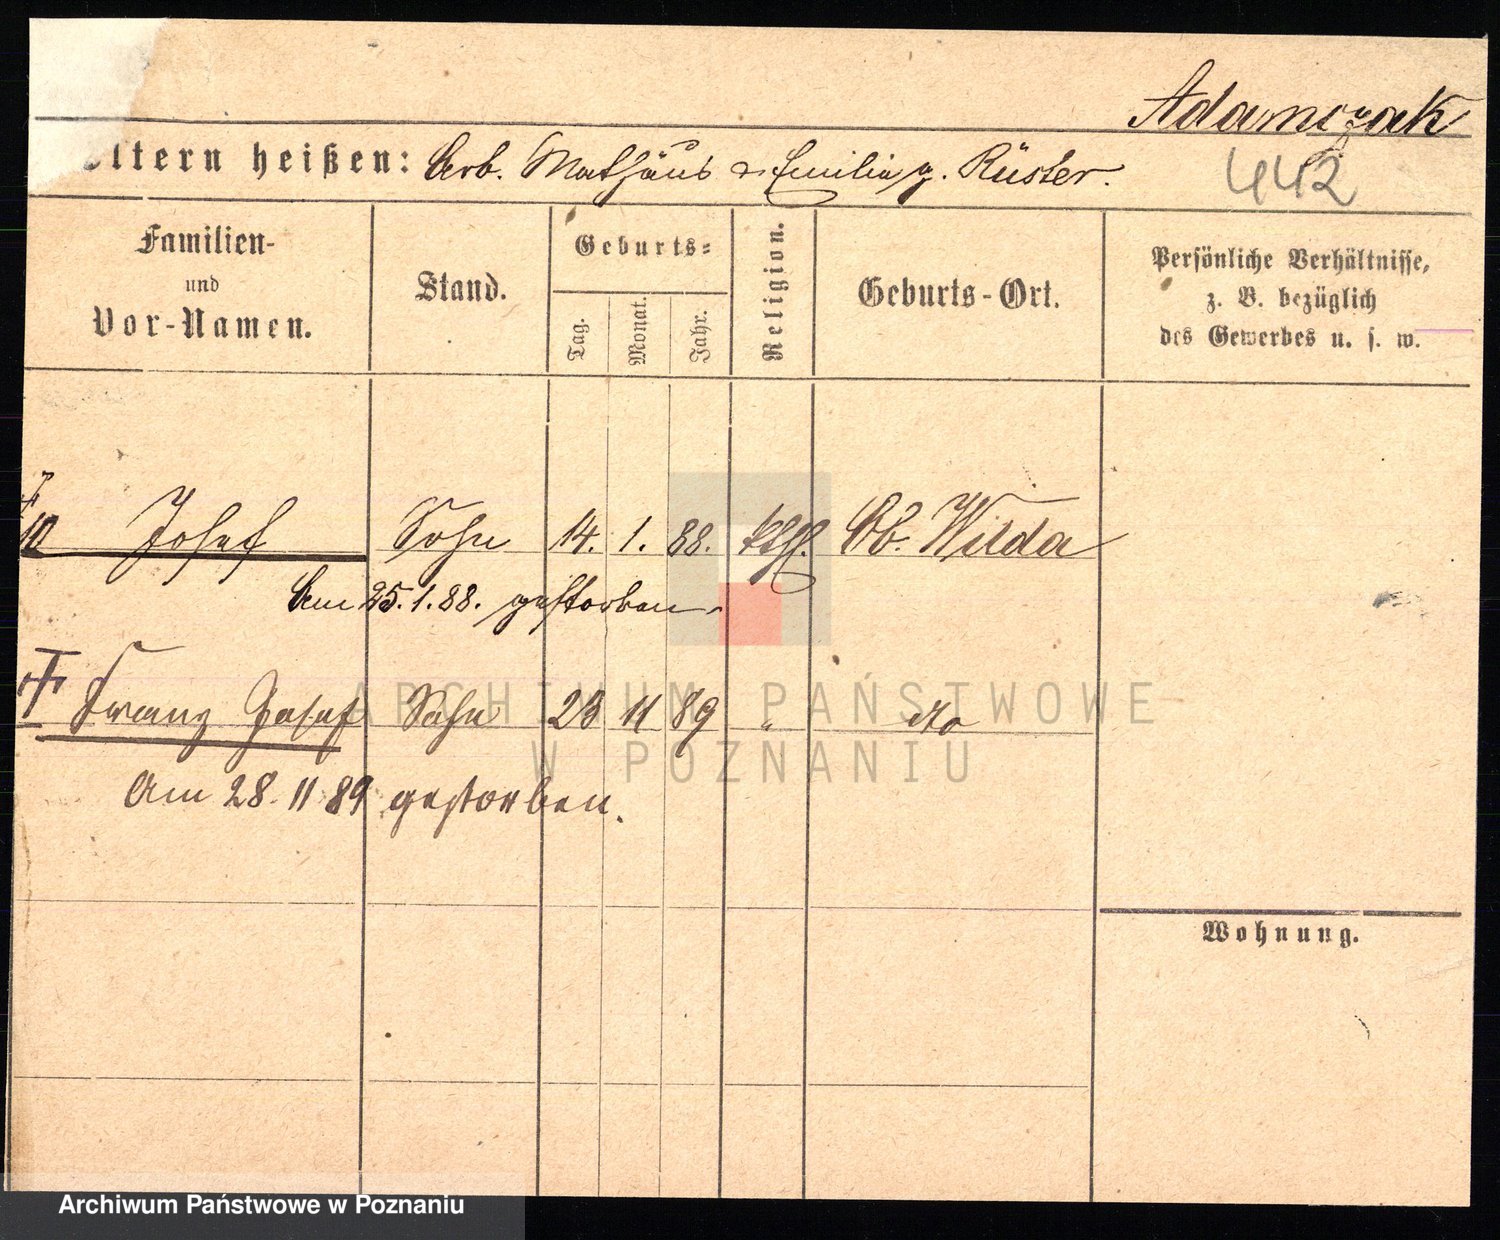 Adamczak
442
Eltern heißen: Arb. Mathäus u. Emilia g. Rüster.
Familien-
und
Vor-Namen.
Stand.
Geburts-
Tag.
Monat.
Jahr.
Religion.
Geburts-Ort.
Persönliche Verhältnisse,
z. B. bezüglich
des Gewerbes u. s. w.
Josef Sohn 14. 1. 88. kth. Ob. Wilda
Am 25.1.88. gestorben.
Franz Josef Sohn 23 11 89 " do
Am 28. 11 89 gestorben.
Wohnung.
ARCHIWUM PAŃSTWOWE
W POZNANIU
Archiwum Państwowe w Poznaniu